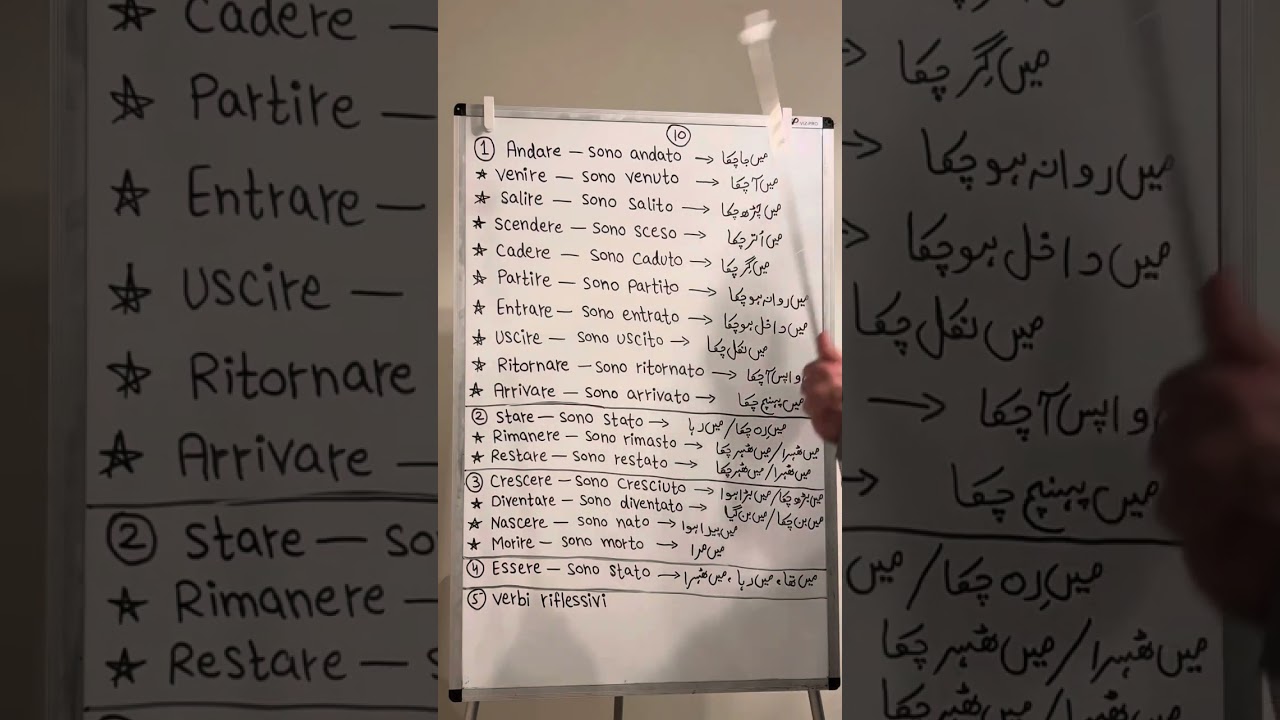 10
VIZ-PRO
① Andare – sono andato → میں جا چکا
★ venire – sono venuto → میں آ چکا
★ Salire – sono salito → میں چڑھ چکا
★ Scendere – sono sceso → میں اُتر چکا
★ Cadere – sono caduto → میں گِر چکا
★ Partire – sono partito → میں روانہ ہو چکا
★ Entrare – sono entrato → میں داخل ہو چکا
★ Uscire – sono uscito → میں نکل چکا
★ Ritornare – sono ritornato → واپس آ چکا
★ Arrivare – sono arrivato → میں پہنچ چکا
② Stare – sono stato → میں رِہ چکا / میں رہا
★ Rimanere – sono rimasto → میں ٹھہرا / میں ٹھہر چکا
★ Restare – sono restato → میں ٹھہرا / میں ٹھہر چکا
③ Crescere – sono cresciuto → میں بڑھ چکا / میں بڑا ہوا
★ Diventare – sono diventato → میں بن چکا / میں بن گیا
★ Nascere – sono nato → میں پیدا ہوا
★ Morire – sono morto → میں مرا
④ Essere – sono stato → میں تھا، میں رہا، میں ٹھہرا
⑤ verbi riflessivi